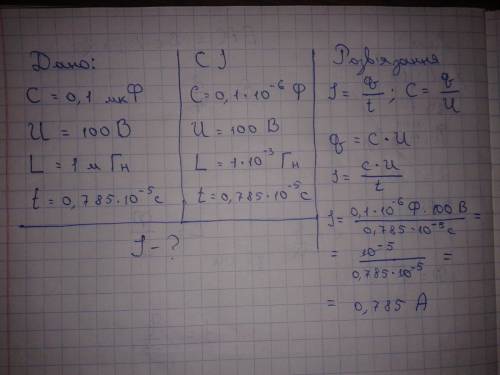 Дано:
C = 0,1 мкФ
U = 100 В
L = 1 мГн
t = 0,785·10⁻⁵ с
І - ?
СІ
C = 0,1·10⁻⁶ Ф
U = 100 В
L = 1·10⁻³ Гн
t = 0,785·10⁻⁵ с
Розв'язання
I = q/t ; C = q/U
q = C·U
I = C·U/t
I = 0,1·10⁻⁶ Ф·100 В/0,785·10⁻⁵ с =
= 10⁻⁵/0,785·10⁻⁵ =
= 0,785 А